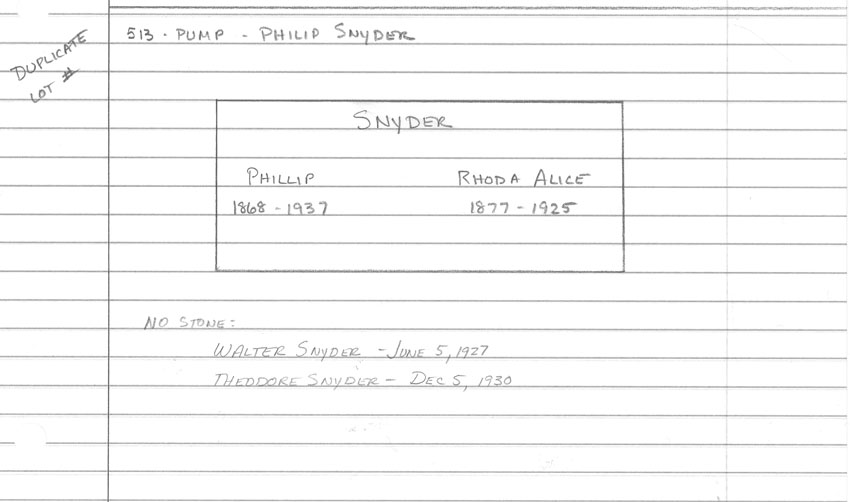 513 · PUMP - PHILIP SNYDER
DUPLICATE
LOT #
SNYDER
PHILLIP RHODA ALICE
1868 - 1937 1877 - 1925
NO STONE:
WALTER SNYDER - JUNE 5, 1927
THEODORE SNYDER - DEC 5, 1930